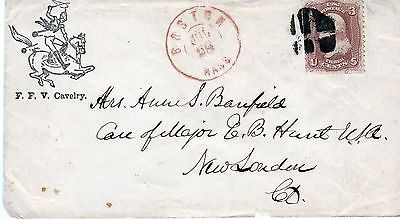 BOSTON
MASS.
3 3
U.S.
POSTAGE
THREE CENTS
F. F. V. Cavelry.
Mrs. Anne S. Banfield
Care of Major E. B. Hunt U.S.A.
New London
Ct.